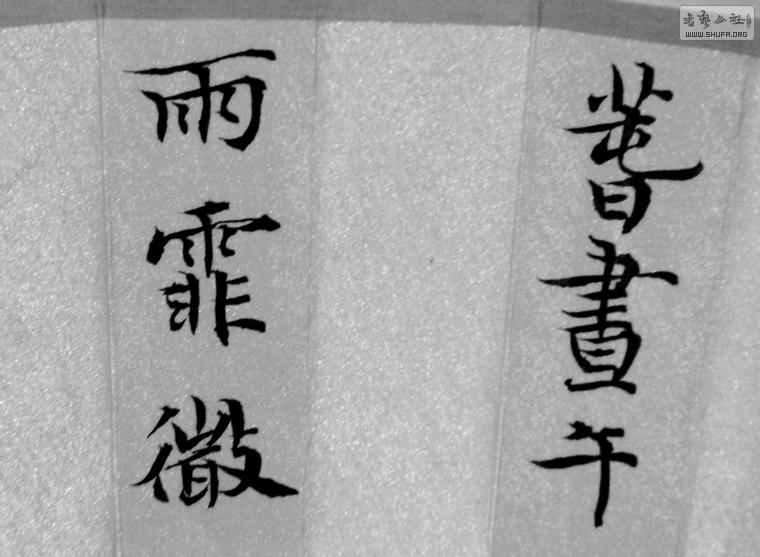 萅晝午
雨霏微
書藝公社
WWW.SHUFA.ORG